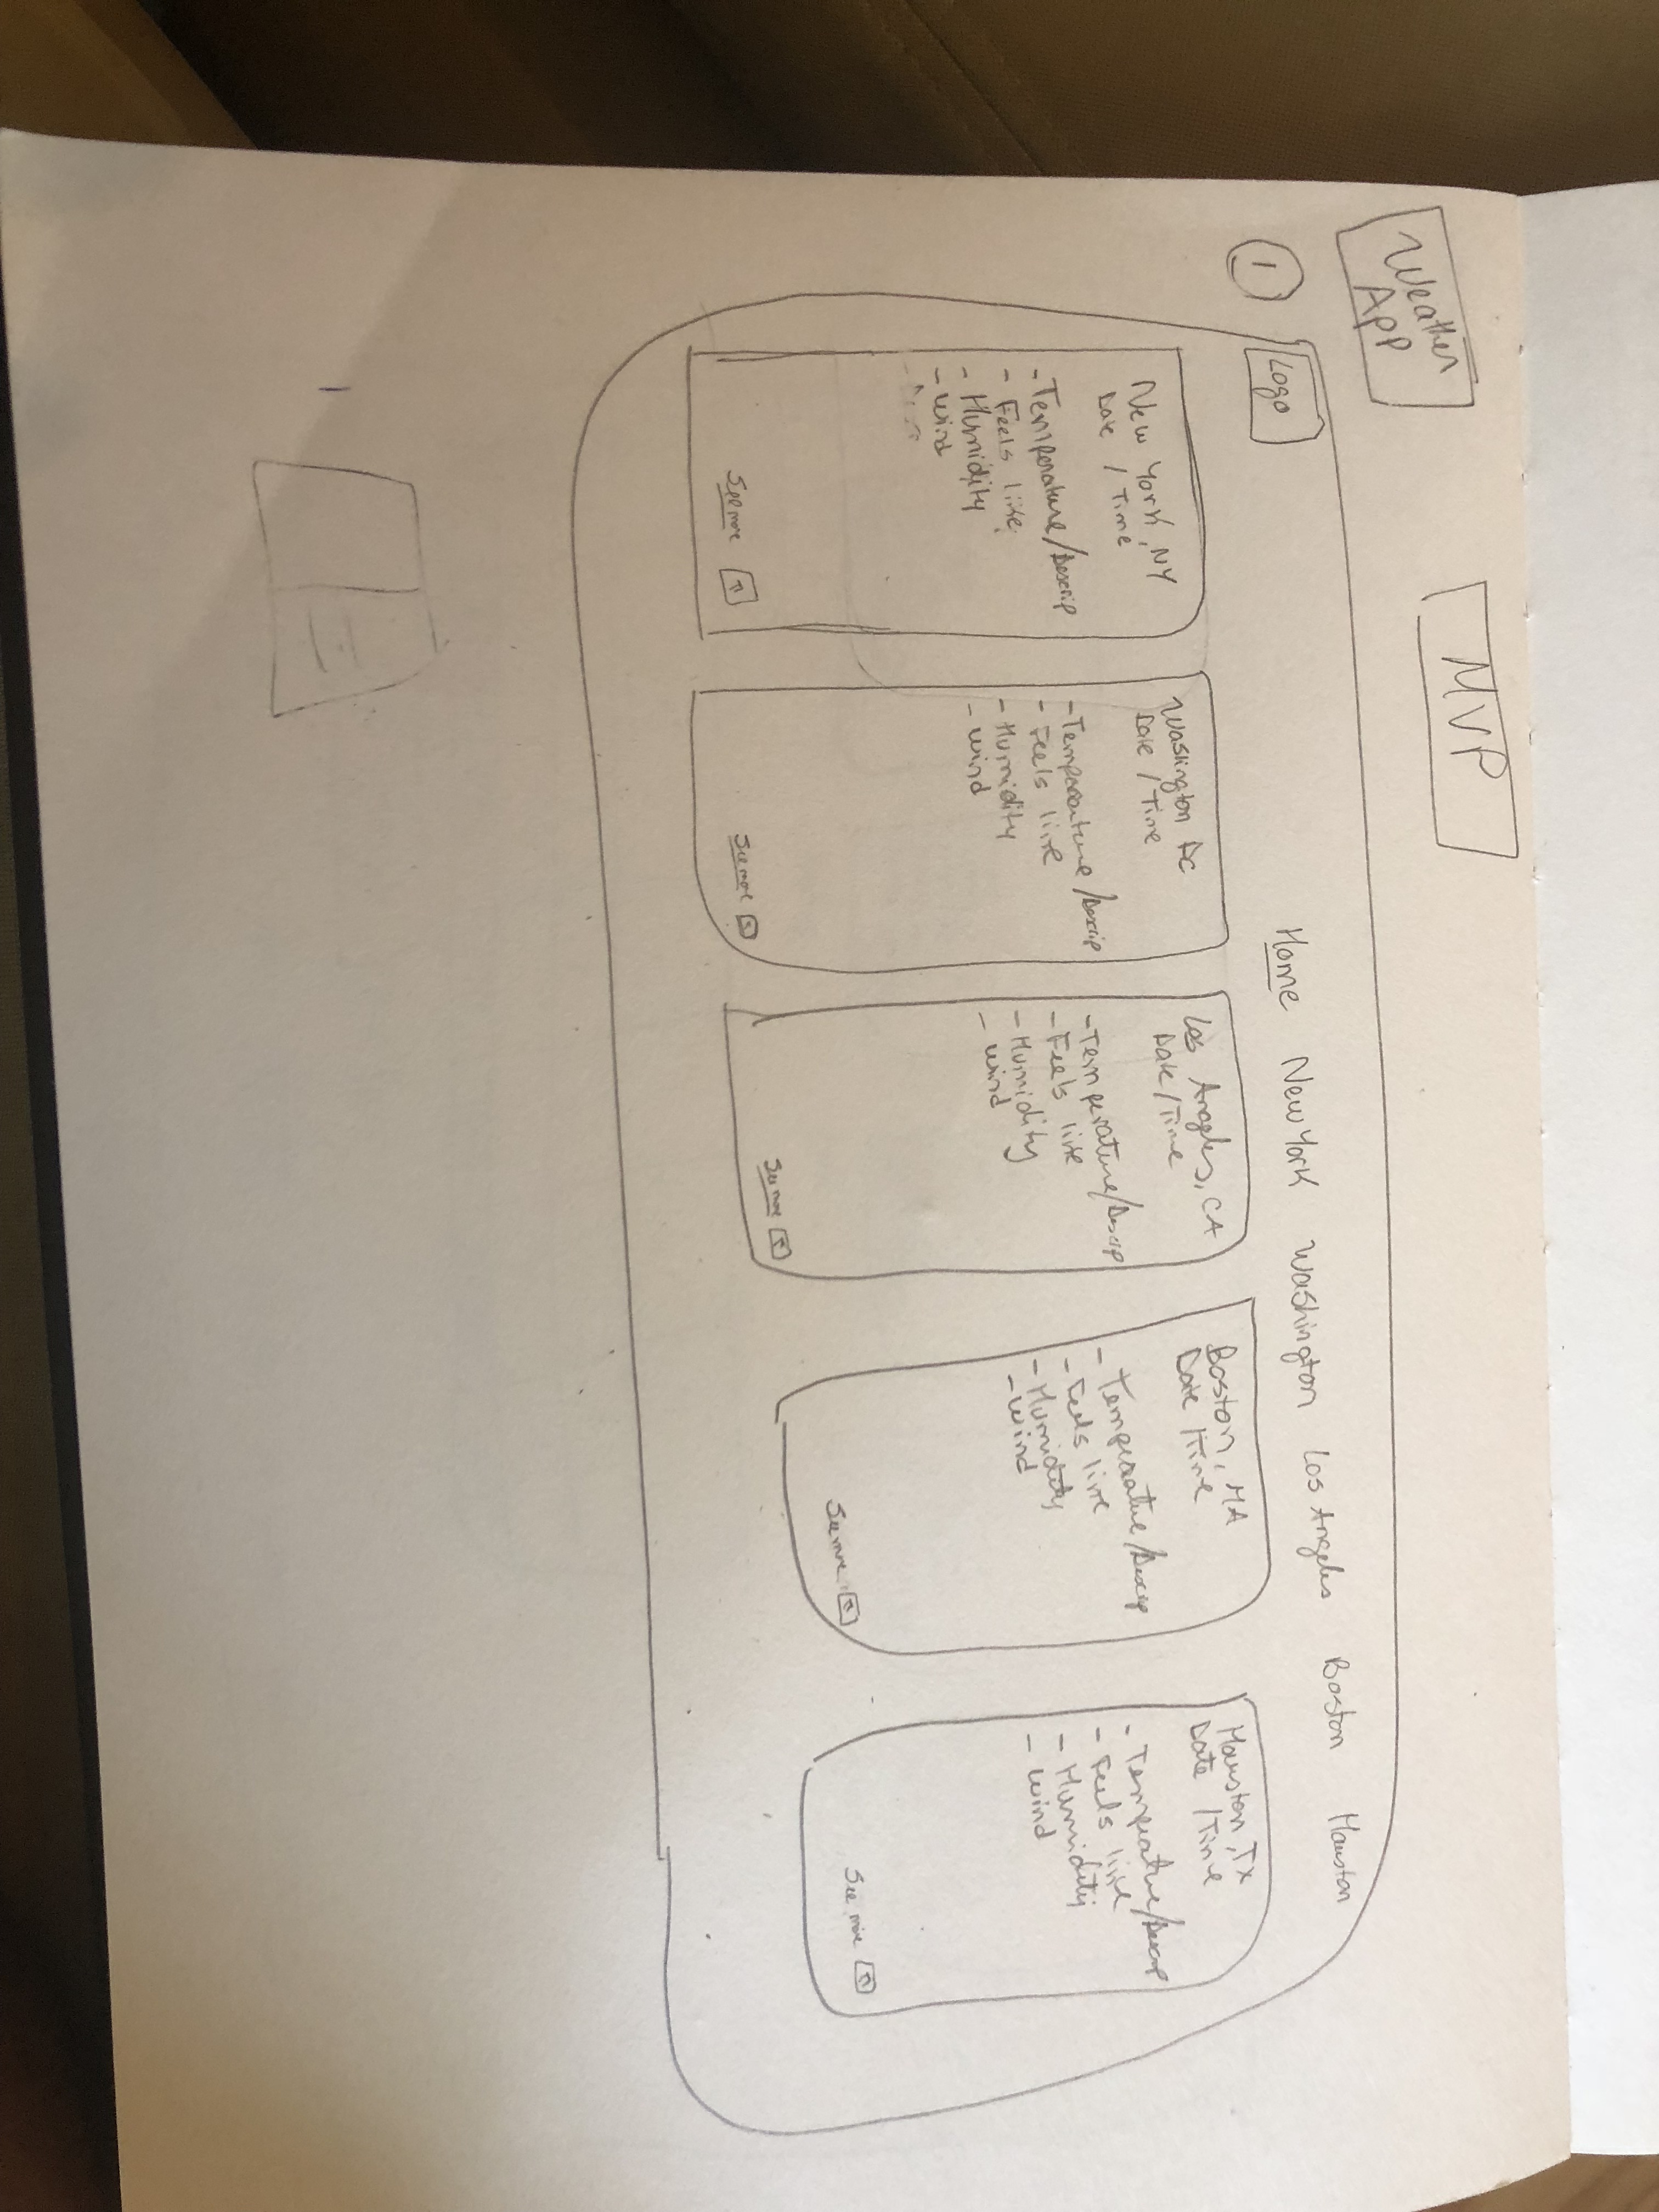 Weather
App
MVP
1
Logo
Home New York Washington Los Angeles Boston Houston
New York, NY
Date / Time
- Temperature/Descrip
- Feels like
- Humidity
- Wind
See more
Washington DC
Date / Time
- Temperature/Descrip
- Feels like
- Humidity
- Wind
See more
Los Angeles, CA
Date / Time
- Temperature/Descrip
- Feels like
- Humidity
- Wind
See more
Boston, MA
Date Time
- Temperature/Descrip
- Feels like
- Humidity
- Wind
See more
Houston, TX
Date / Time
- Temperature/Descrip
- Feels like
- Humidity
- Wind
See more